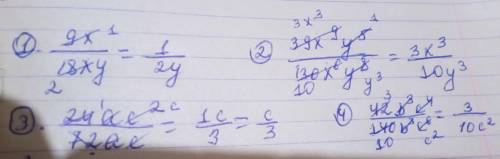 ① 9x¹/18xy = 1/2y
2
② 3x³ 39x⁹y⁵ ¹/130x⁶y⁸ = 3x³/10y³
10 y³
③ 24ac² c/72ac = 1c/3 = c/3
④ 3 42b³c⁴/140b³c⁶ = 3/10c²
10 c²